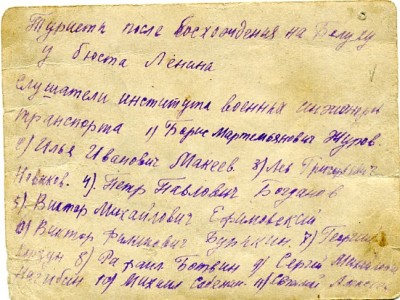 Туристы после восхождения на Белуху
у бюста Ленина
слушатели института военных инженеров
транспорта 1) Борис Мартемьянович Журов.
2) Илья Иванович Макеев. 3) Лев Григорьевич
Новиков. 4). Петр Павлович Богданов
5). Виктор Михайлович Ефимовский
6) Виктор Филиппович Бутякин. 7) Георгий
8) Рафаил Ботвин 9) Сергей Михайлович
10) Михаил 11) Евгений Алексеев